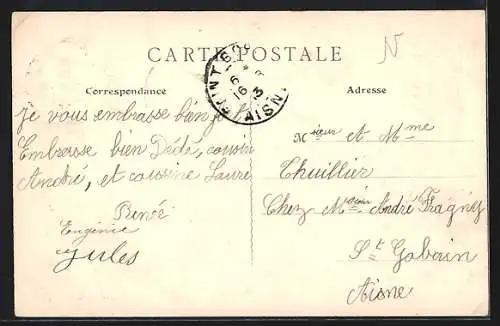 CARTE POSTALE
N
Correspondance
Adresse
AISNE
je vous embrasse bien
Embrasse bien Dédé, cousin
André, et cousine Laure
Renée
Eugénie
Jules
Msieur et Mme
Thuillier
Chez Msieur André Fragney
St Gobain
Aisne